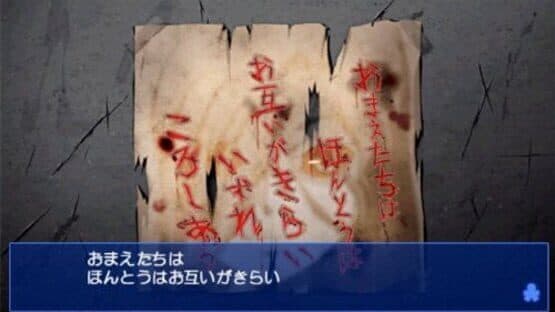 おまえたちは
ほんとうは
お互いがきらい
いずれ
ころしあ
おまえたちは
ほんとうはお互いがきらい